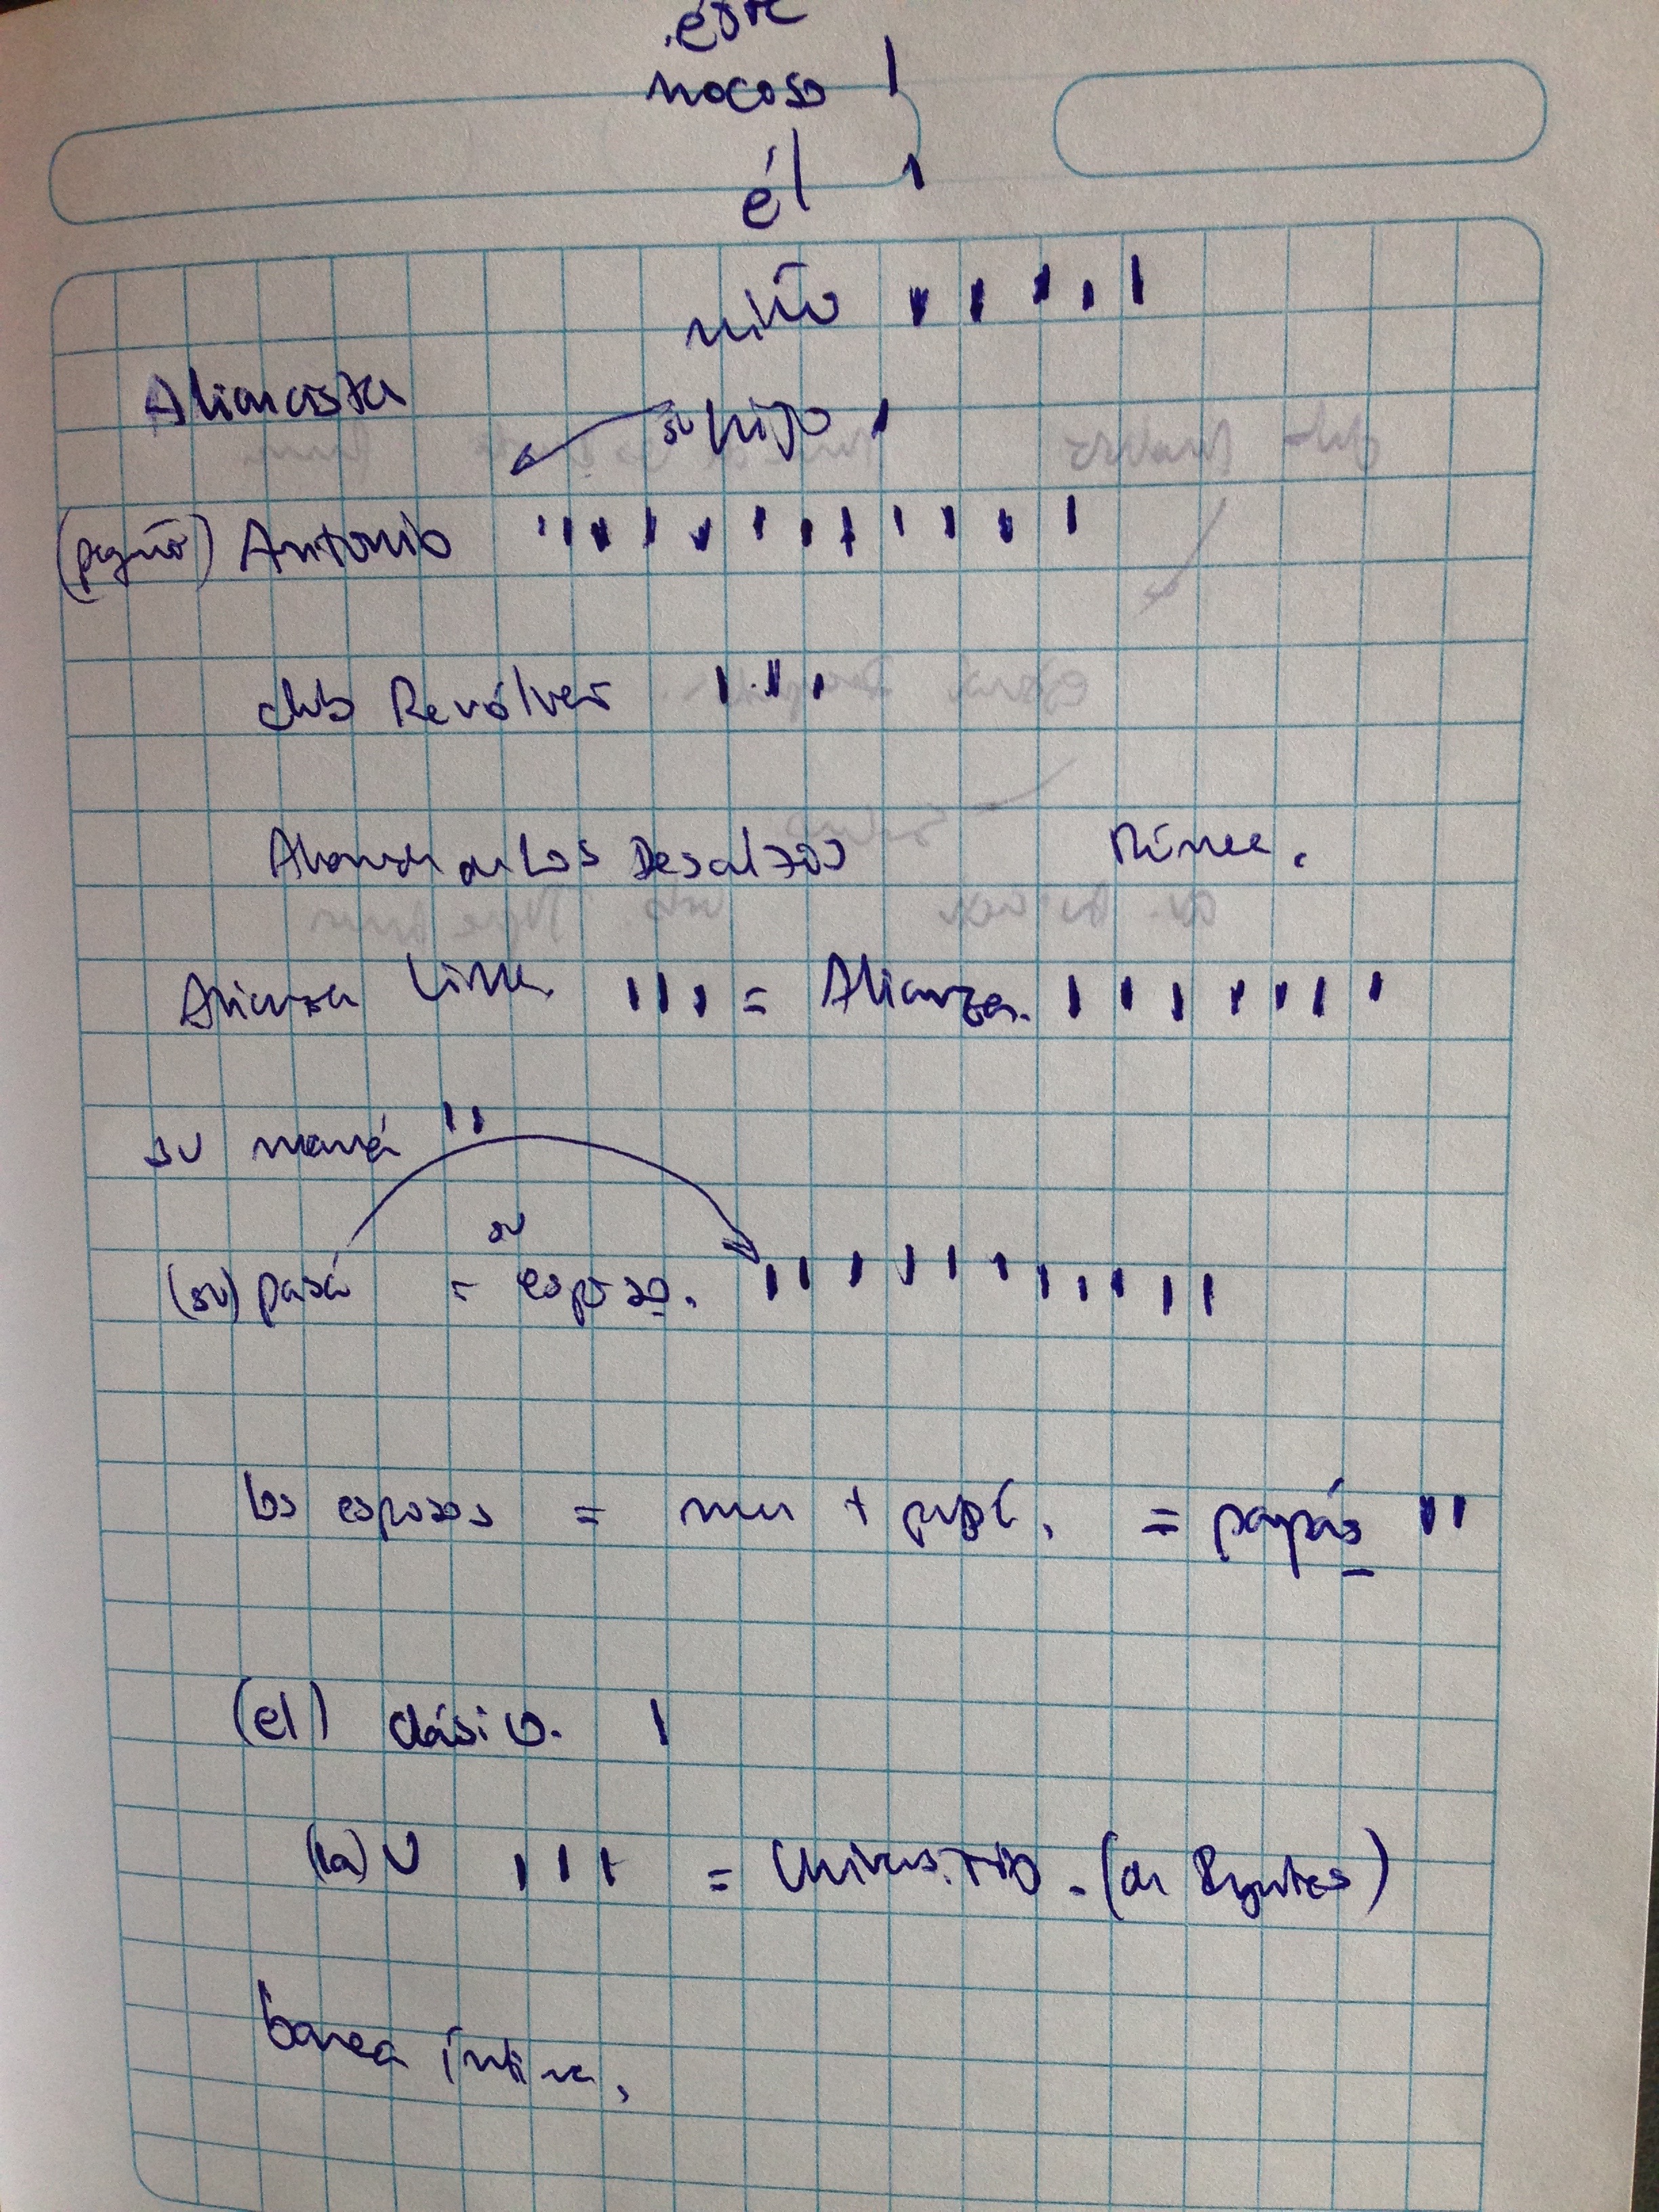 este
mocoso |
él |
niño | | | | |
Aliancista
su hijo |
(pequeño) Antonio | | | | | | | | | | | |
club Revólver | | | |
Alameda de Los Descalzos Rímac.
Alianza Lima | | | = Alianza. | | | | | | |
su mamá | |
su
(su) papá = esposo. | | | | | | | | | | |
los esposos = = papás | |
(el) clásico. |
(la) U | | | = Universitario. (de Deportes)
barra íntima,